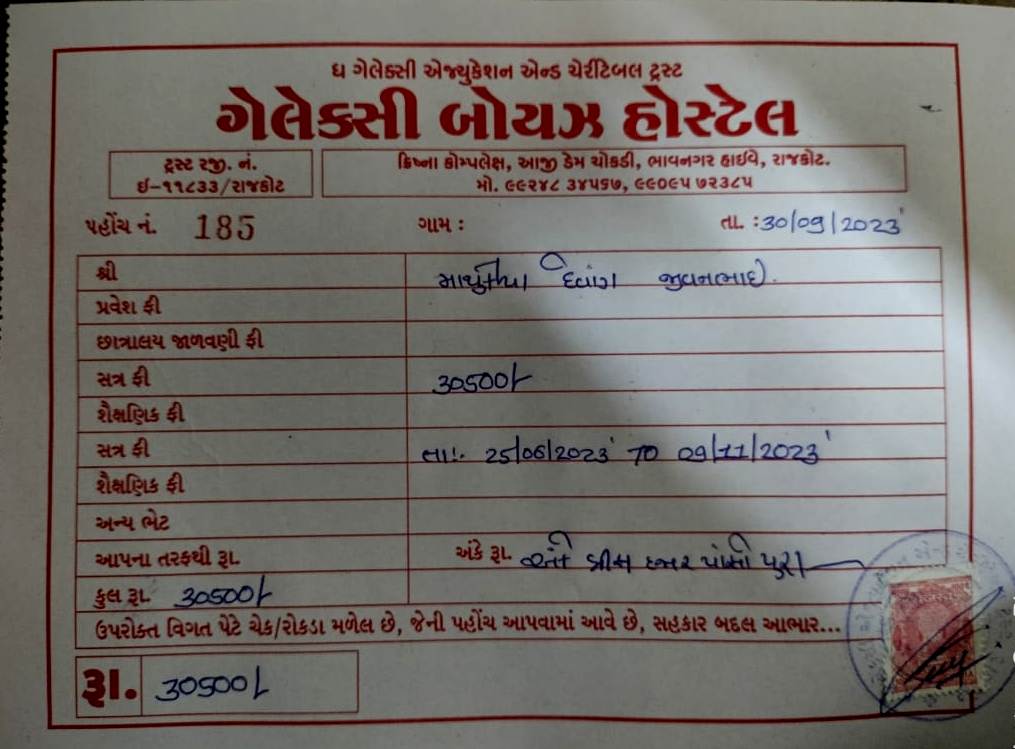 ધ ગેલેક્સી એજ્યુકેશન એન્ડ ચેરીટેબલ ટ્રસ્ટ
ગેલેક્સી બોયઝ હોસ્ટેલ
ટ્રસ્ટ રજી. નં.
ઇ-૧૧૮૩૩/રાજકોટ
ક્રિષ્ના કોમ્પલેક્ષ, આજી ડેમ ચોકડી, ભાવનગર હાઈવે, રાજકોટ.
મો. ૯૯૨૪૮ ૩૪૫૬૭, ૯૯૦૯૫ ૭૨૩૮૫
પહોંચ નં. 185 ગામ : તા. : 30/09/2023
શ્રી દેવાંગ જીવનભાઈ.
પ્રવેશ ફી
છાત્રાલય જાળવણી ફી
સત્ર ફી 30500/-
શૈક્ષણિક ફી
સત્ર ફી તા:. 25/06/2023 TO 09/11/2023
શૈક્ષણિક ફી
અન્ય ભેટ
આપના તરફથી રૂા. અંકે રૂા. ત્રીસ હજાર પાંચસો પુરા
કુલ રૂા. 30500/-
ઉપરોક્ત વિગત પેટે ચેક/રોકડા મળેલ છે, જેની પહોંચ આપવામાં આવે છે, સહકાર બદલ આભાર...
રૂા. 30500/-